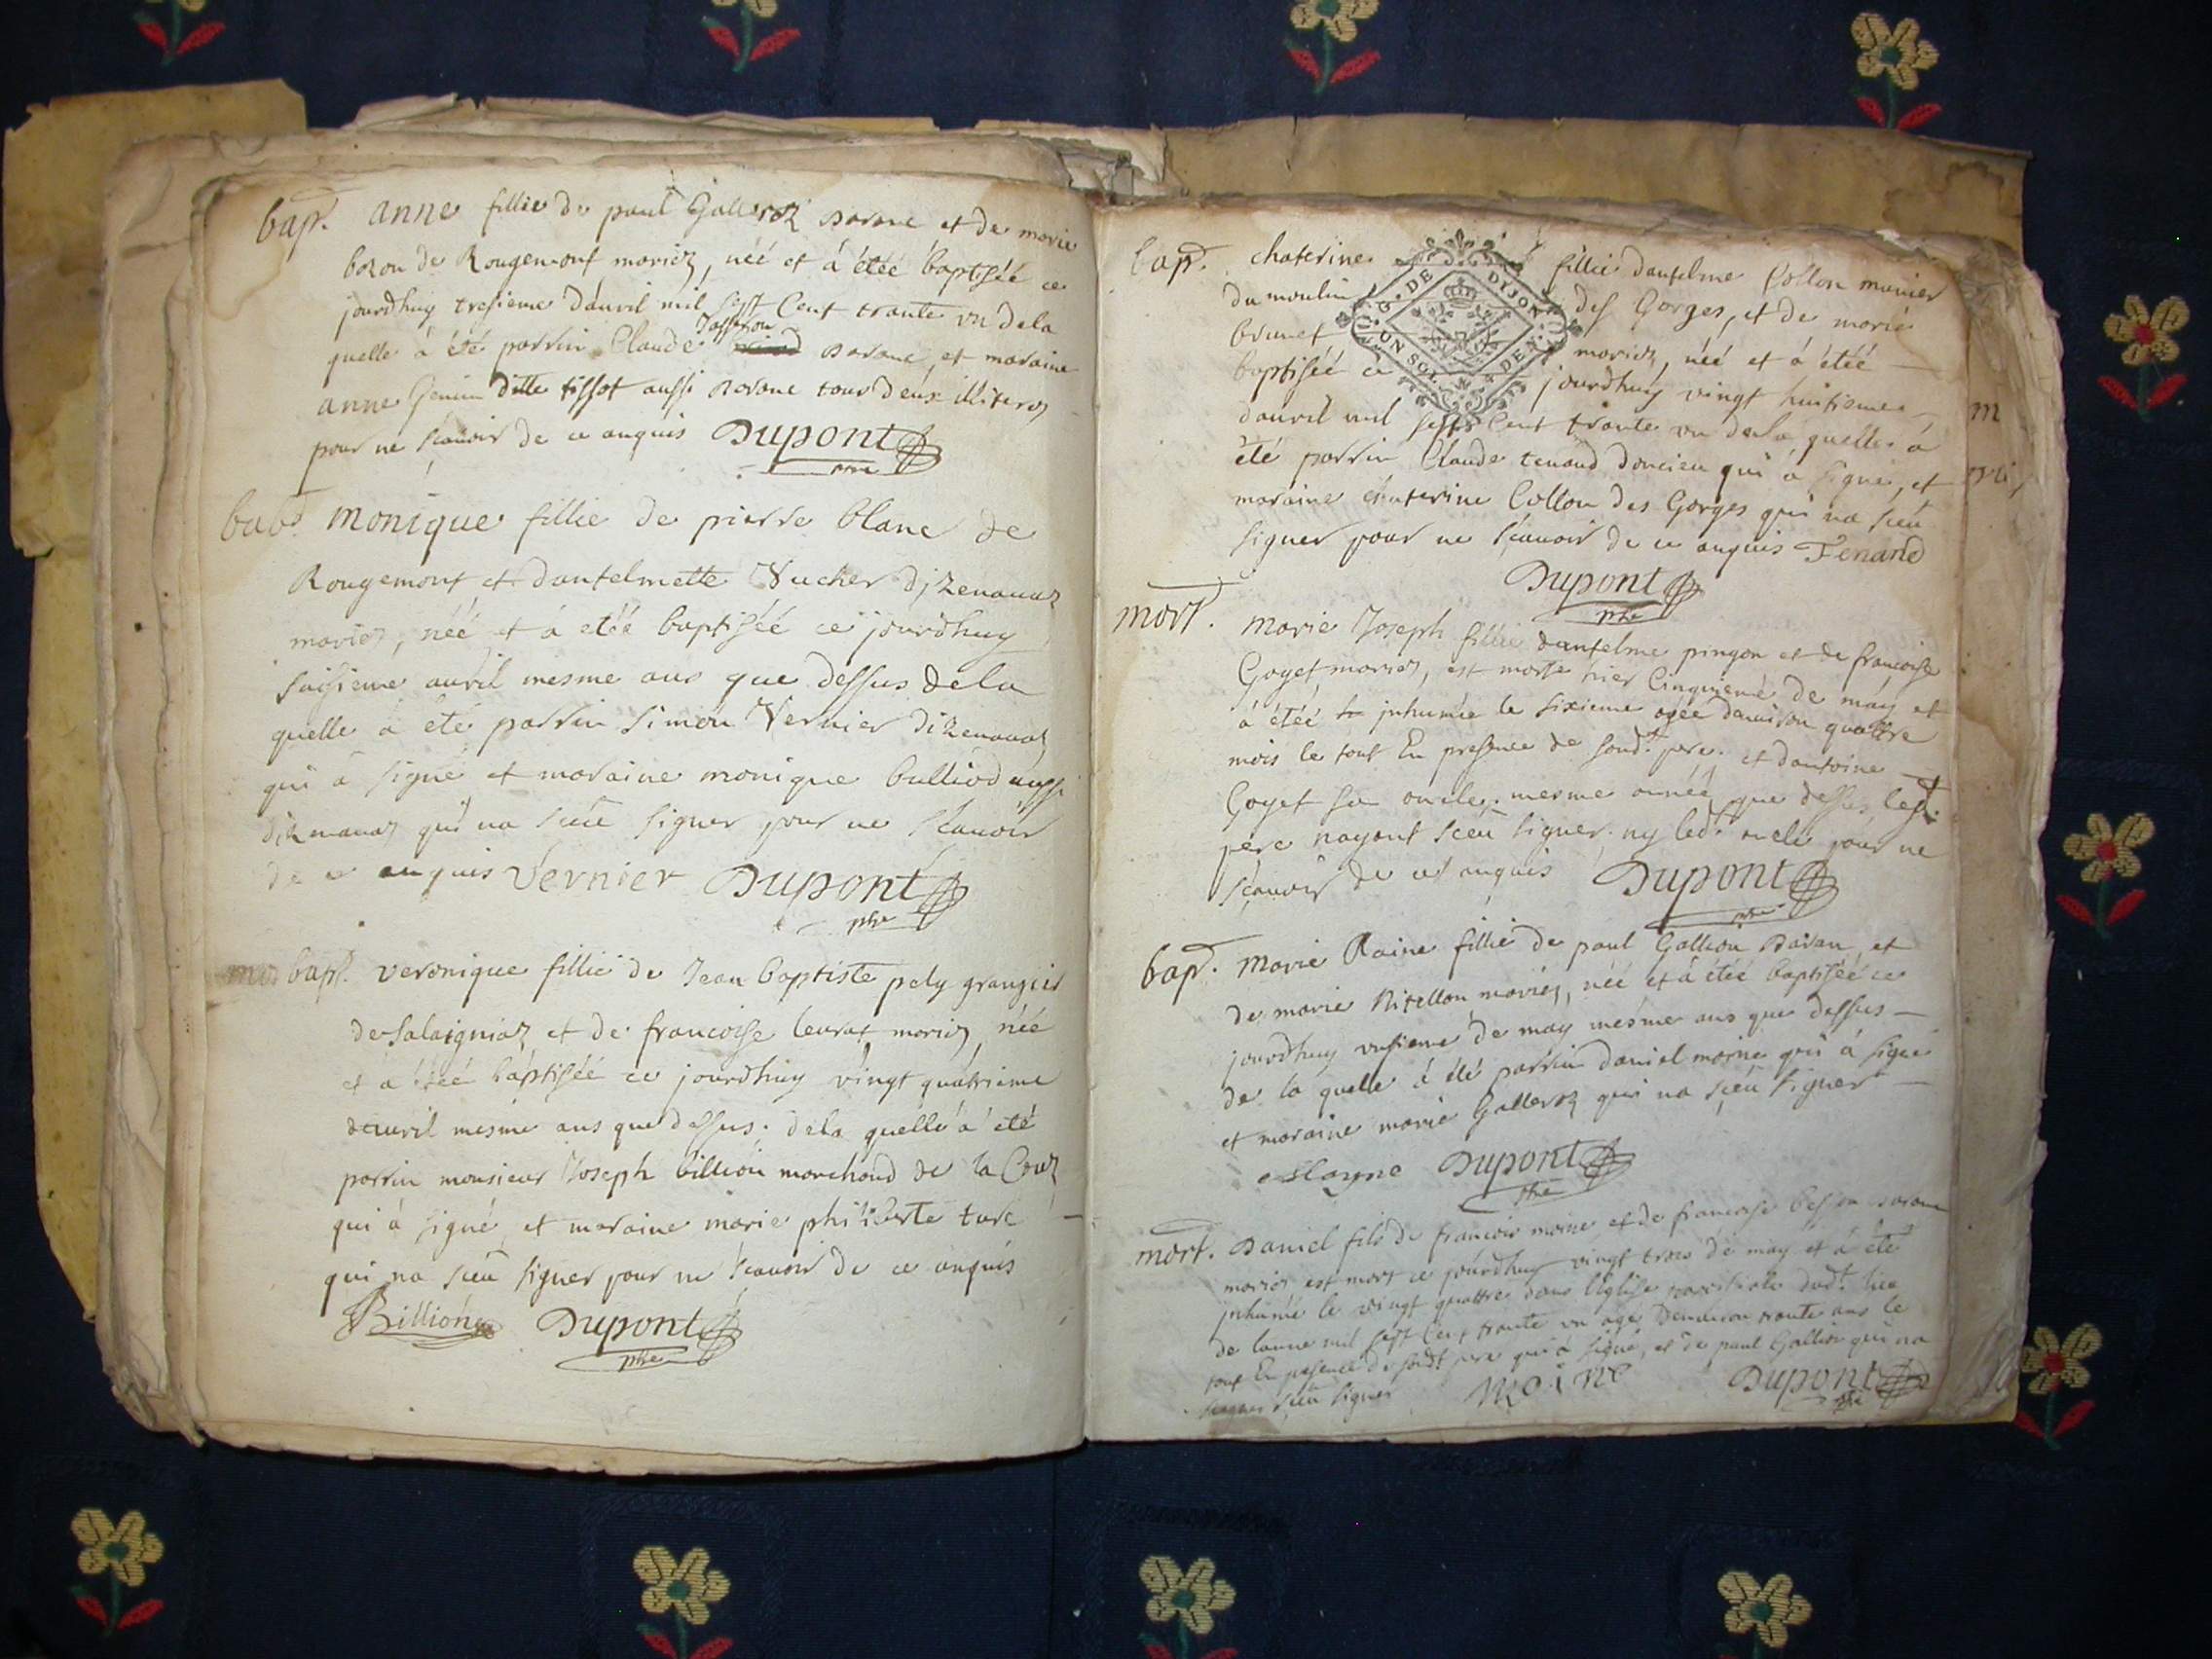 bapt. anne fillie de paul Gallerox darane et de marie
bozon de Rougemont mariez, née et à étéé baptiséé ce
jourdhuy tresieme dauril mil sept Cent trante vn de la
quelle à été parrin Claude darane, et maraine
anne Genin ditte tissot aussi darane tous deux illiterez
pour ne scauoir de ce anquis Dupont
ptre
bapt. monique fillie de pierre blanc de
Rougemont et dantelmette Vucher dizenauaz
mariez, néé et à etéé baptiséé ce jourdhuy
saisieme auril mesme ans que dessus dela
quelle à été parrin simon Vernier dizenauaz
qui à signé et maraine monique bulliod aussi
dizenauaz qui na sceu signer pour ne scauoir
de ce anquis Vernier Dupont
ptre
bapt. veronique fillie de Jean baptiste pely grangier
de salaigniaz et de francoise leurat mariez, néé
et à étéé baptiséé ce jourdhuy vingt quatrieme
dauril mesme ans que dessus. dela quelle à été
parrin monsieur Joseph billion marchand de la Couz
qui à signé, et maraine marie philiberte turc
qui na sceu signer pour ne scauoir de ce anquis
Billion Dupont
ptre
bapt. chaterine fillie dantelme Collon munier
du moulin des Gorges, et de marie
brunet mariez, néé et à étéé
baptiséé ce jourdhuy vingt huitieme
dauril mil sept Cent trante vn dela quelle à
été parrin Claude tenand doncieu qui à signé, et
maraine chaterine Collon des Gorges qui na sceu
signer pour ne scauoir de ce anquis Tenand
Dupont
ptre
G. DE DIJON
UN SOL
DEN.
mort. marie Joseph fillie dantelme pingon et de francoise
Goyet mariez, est morte hier Cinquieme de may et
à étéé inhumée le sixieme agéé denuiron quattre
mois le tout En presence de sondt. pere. et dantoine
Goyet son oncle. mesme annéé que dessus, ledt.
pere nayant sceu signer. ny ledt. oncle pour ne
scauoir de ce anquis Dupont
ptre
bapt. marie Raine fillie de paul Gallion daran, et
de marie Nitellon mariez, néé et à étéé baptiséé ce
jourdhuy vnsieme de may mesme ans que dessus
de la quelle à été parrin daniel moine qui à signé
et maraine marie Gallerox qui na sceu signer
Dupont
ptre
mort. Daniel fils de francois moine, et de francoise besson darane
mariez est mort ce jourdhuy vingt trois de may et à été
inhumé le vingt quattre dans léglise parrissiale dudt. lieu
de lanne mil sept Cent trante vn agé denuiron trante ans le
tout En presence de sondt pere qui à signé, et de paul Gallion qui na
sceu signer moine Dupont
ptre
m